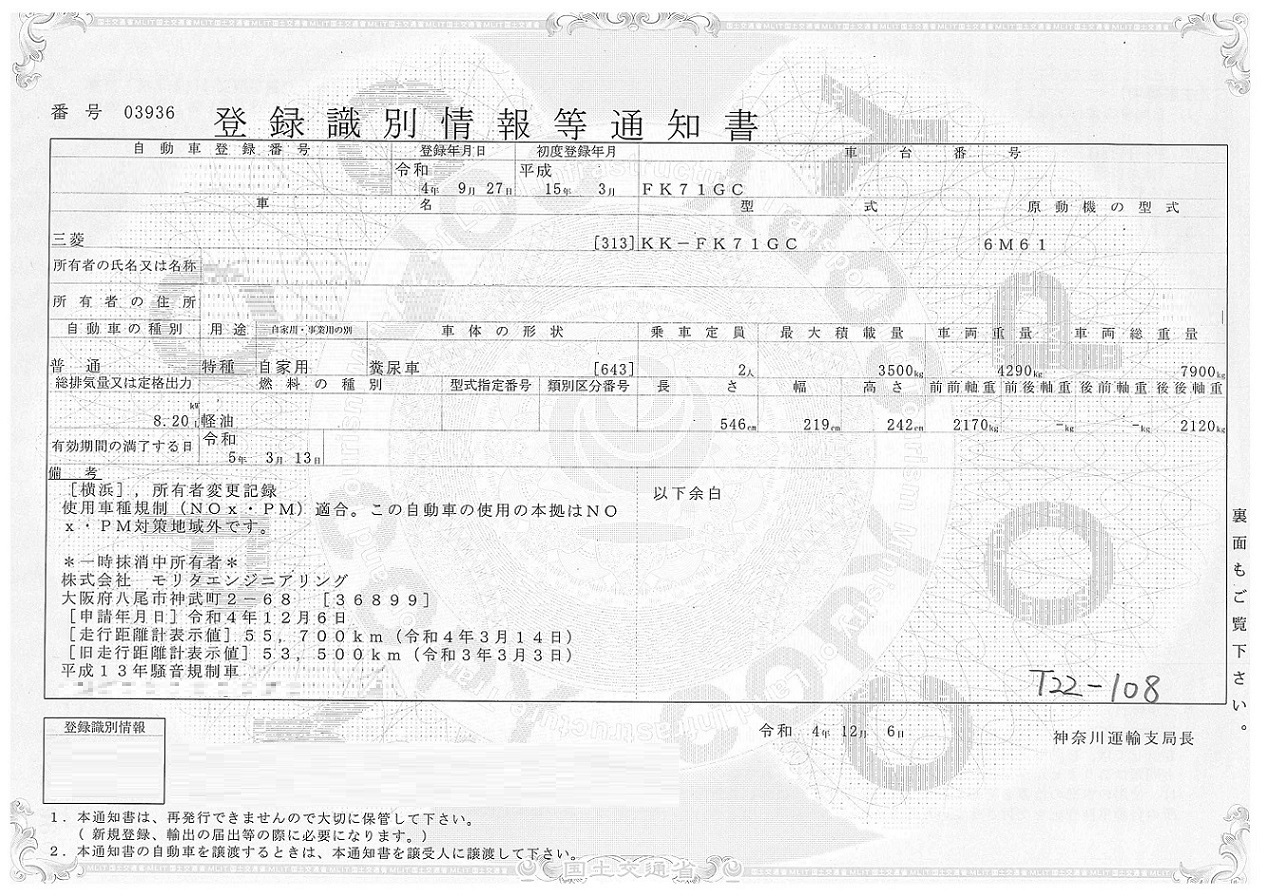 番号 03936 登録識別情報等通知書
自動車登録番号 登録年月日 初度登録年月 車台番号
令和 平成
4年 9月 27日 15年 3月 FK71GC
車名 型式 原動機の型式
三菱 [313] KK-FK71GC 6M61
所有者の氏名又は名称
所有者の住所
自動車の種別 用途 自家用・事業用の別 車体の形状 乗車定員 最大積載量 車両重量 車両総重量
普通 特種 自家用 糞尿車 [643] 2人 3500kg 4290kg 7900kg
総排気量又は定格出力 燃料の種別 型式指定番号 類別区分番号 長さ 幅 高さ 前前軸重 前後軸重 後前軸重 後後軸重
kW
8.20L 軽油 546cm 219cm 242cm 2170kg -kg -kg 2120kg
有効期間の満了する日 令和
5年 3月 13日
備考
[横浜],所有者変更記録 以下余白
使用車種規制(NOx・PM)適合。この自動車の使用の本拠はNO
x・PM対策地域外です。
*一時抹消中所有者*
株式会社 モリタエンジニアリング
大阪府八尾市神武町2-68 [36899]
[申請年月日]令和4年12月6日
[走行距離計表示値]55,700km(令和4年3月14日)
[旧走行距離計表示値]53,500km(令和3年3月3日)
平成13年騒音規制車
T22-108
裏面もご覧下さい。
登録識別情報
令和 4年 12月 6日 神奈川運輸支局長
1.本通知書は、再発行できませんので大切に保管して下さい。
(新規登録、輸出の届出等の際に必要になります。)
2.本通知書の自動車を譲渡するときは、本通知書を譲受人に譲渡して下さい。
国土交通省